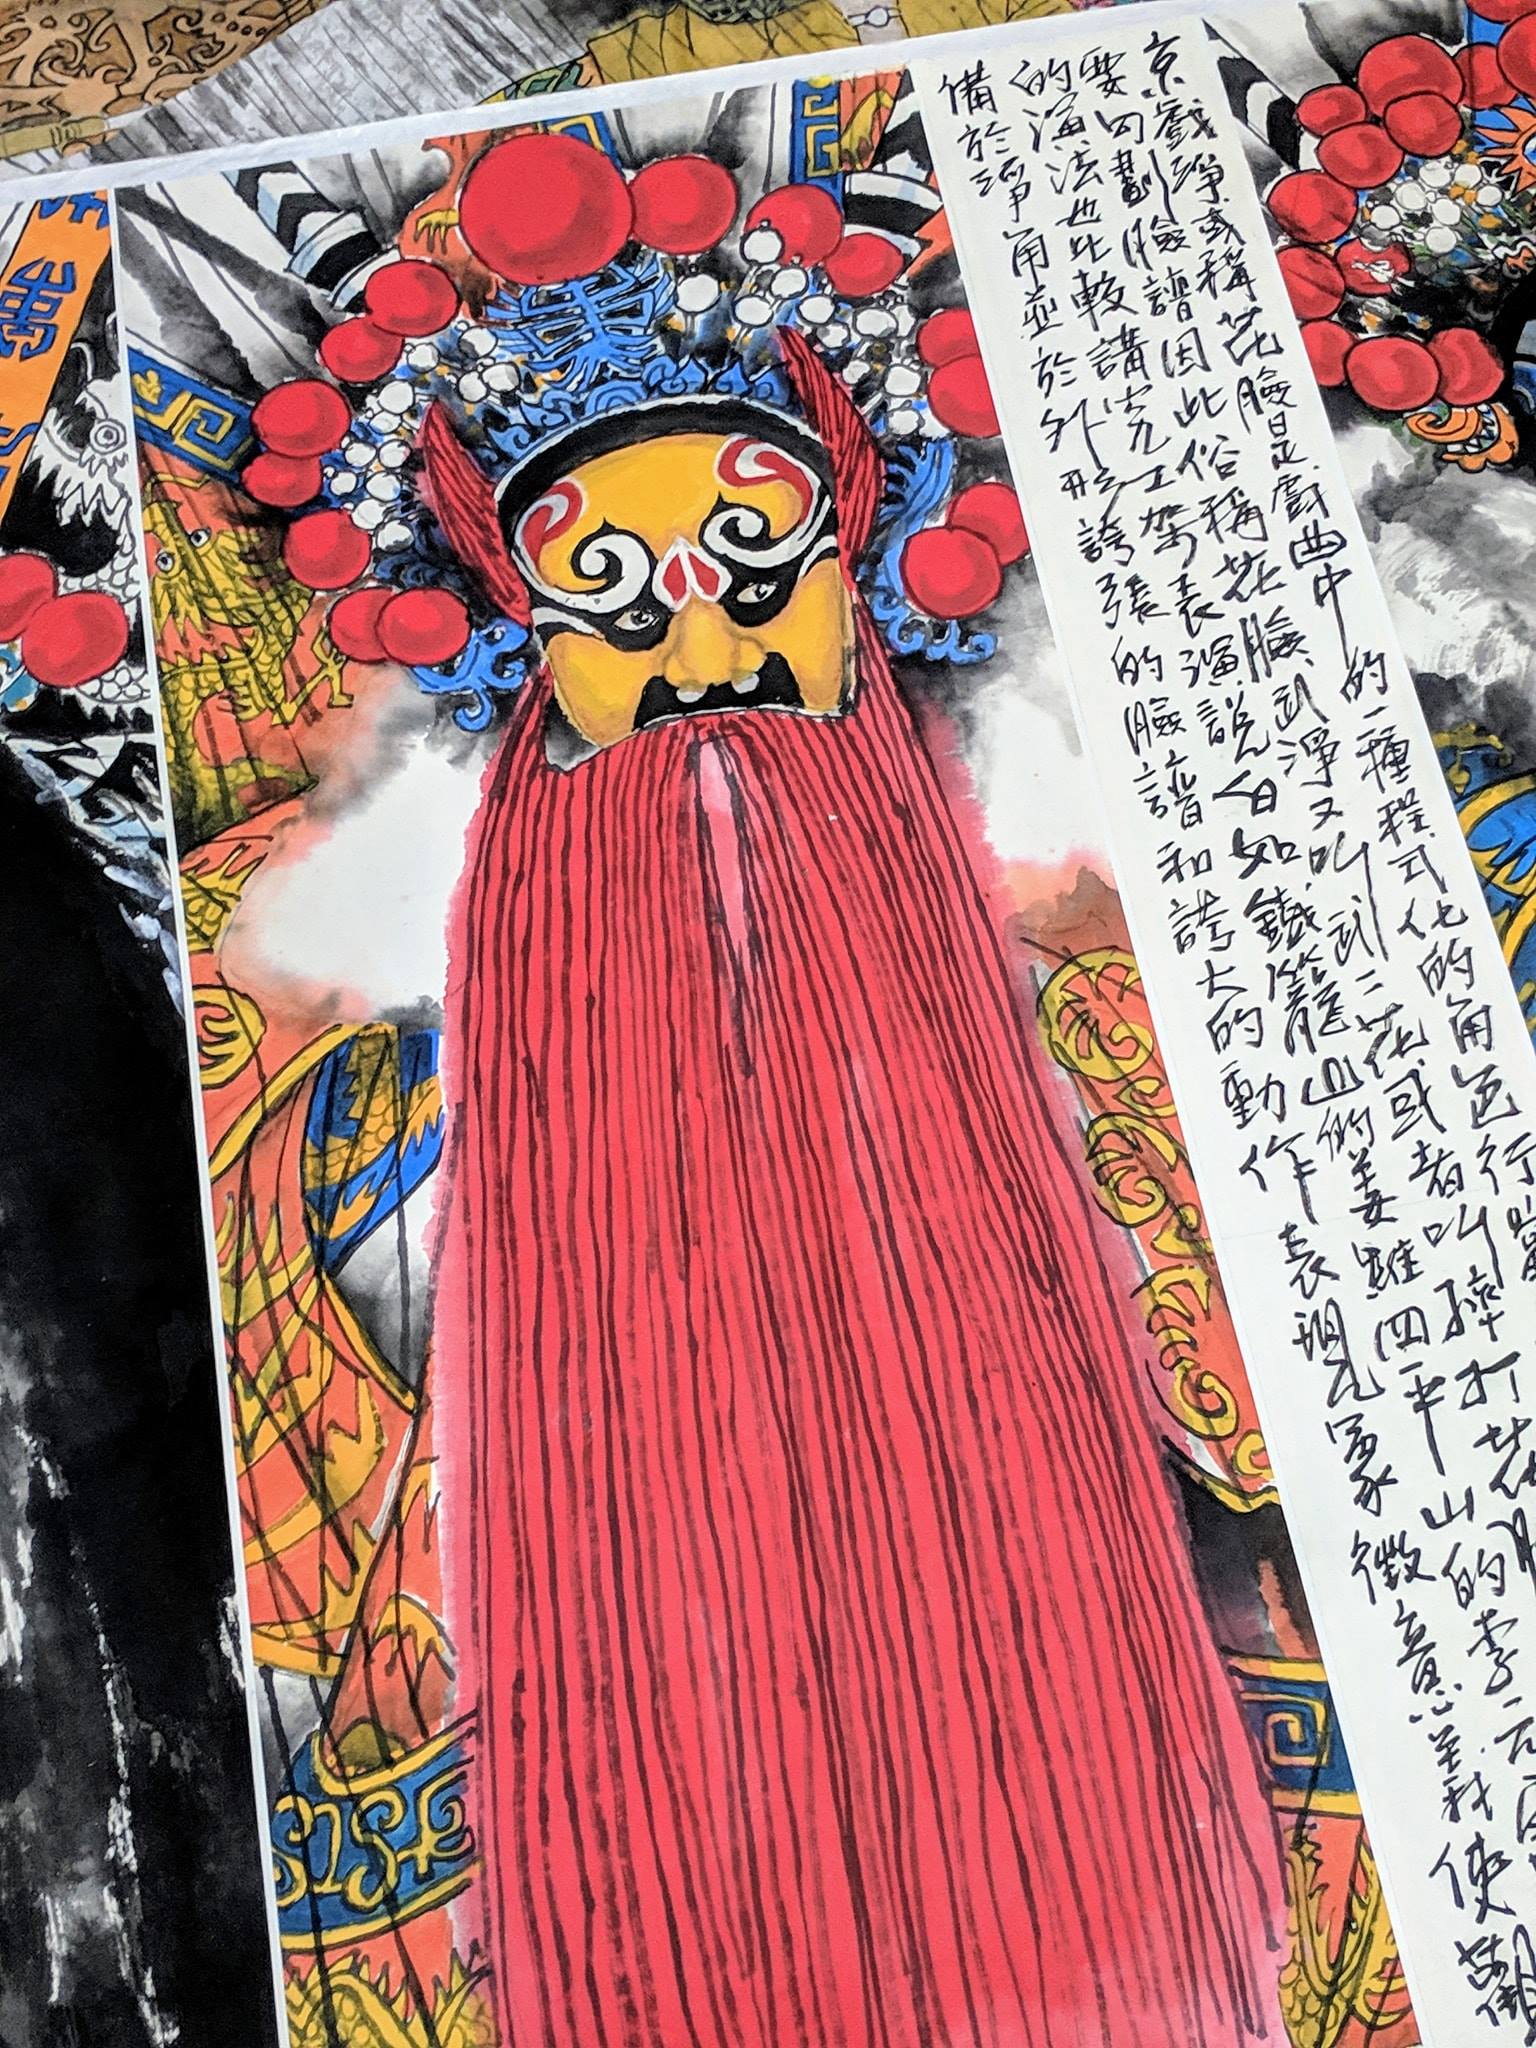 京戲淨或稱花臉是戲曲中的一種程式化的角色行當
要勾畫臉譜因此俗稱花臉武淨又叫武二花或者叫摔打花臉
的演法也比較講究工架表演說白如鐵籠山的姜維四平山的李元霸
備於淨角並於外形誇張的臉譜和誇大的動作表現象徵意義使觀